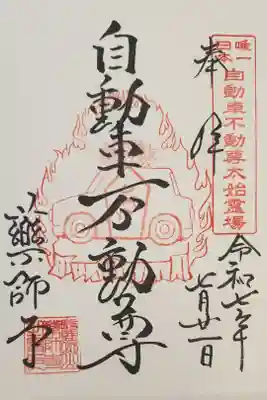 奉拝
日本唯一
自動車不動尊太始霊場
令和七年
七月廿一日
自動車不動尊
薬師寺